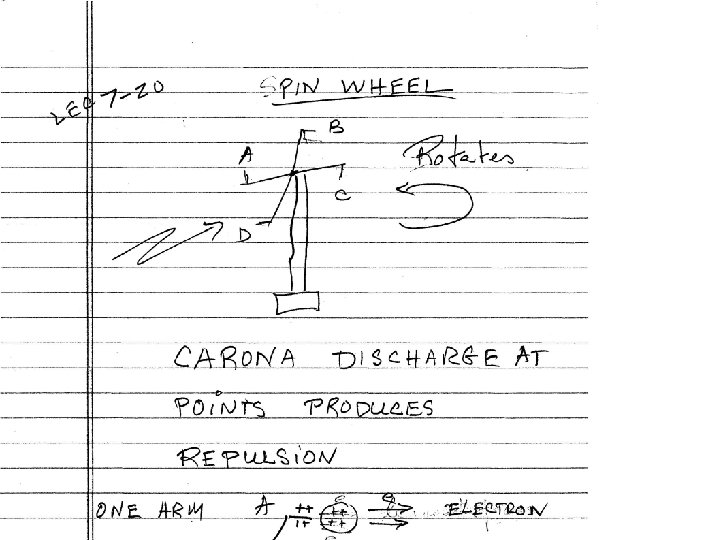 LEC 7-20
SPIN WHEEL
B
A
Rotates
C
D
CARONA DISCHARGE AT
POINTS PRODUCES
REPULSION
ONE ARM A ++ ++ ELECTRON